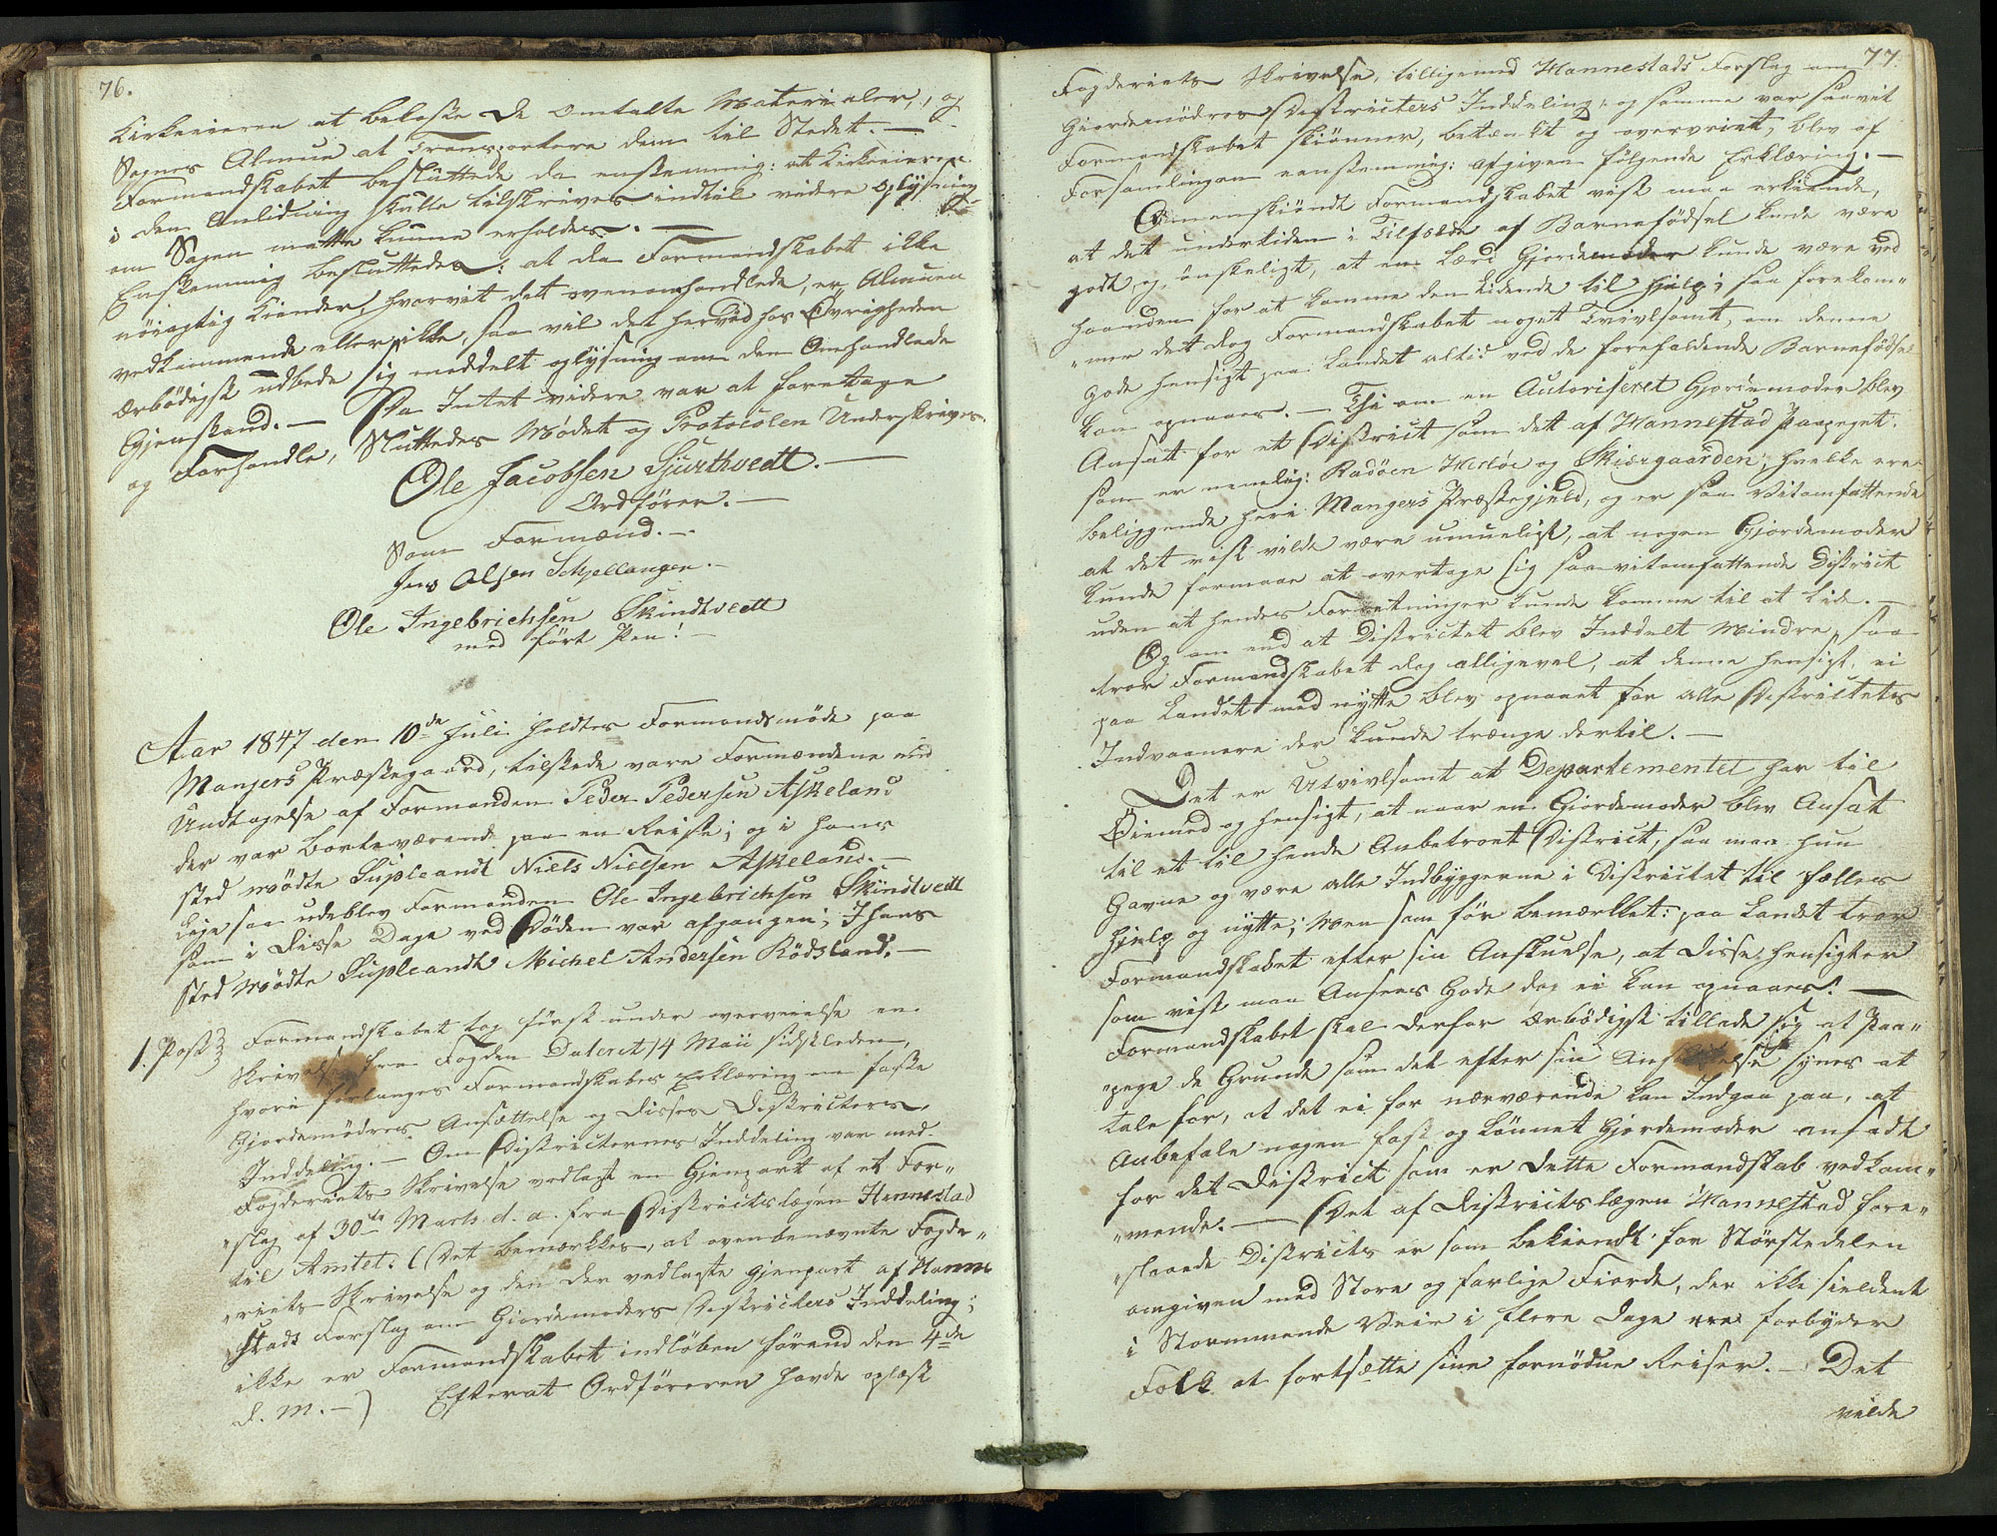 76.
Kirkeeieren at bekoste de omtalte Materialer, og
Sognes Almue at Transportere dem til Stedet. —
Formandskabet besluttede da enstemmig: at Kirkeeieren
i den Anledning skulle tilskrives indtil videre Oplysning
om Sagen matte kunne erholdes. —
Enstemmig besluttedes: at da Formandskabet ikke
nöiagtig kiender, hvorvit det ovenomhandlede, er Almuen
vedkommende eller ikke, saa vil det herved hos Øvrigheden
ærbödigst udbede sig meddelt oplysning om den Omhandlede
Gjenstand. — Da Intet videre var at foretage
og Forhandle, Sluttedes Mödet og Protocolen Underskrives.
Ole Jacobsen Sjurthvedt. —
Ordförer. —
Som Formænd. —
Jens Olsen Schjellanger. —
Ole Ingebrichsen Skindtvedt
med fört Pen! —
Aar 1847 den 10de Juli holdtes Formandsmöde paa
Mangers Præstegaard, tilstede vare Formændene med
Undtagelse af Formanden Peder Pedersen Askeland
der var bortværende paa en Reise; og i hans
sted mödte Supleandt Niels Nielsen Askeland. —
Ligesaa udeblev Formanden Ole Ingebrichsen Skindtvedt
som i disse Dage ved Döden var afgangen; I hans
sted Mödte Supleandt Michel Andersen Rödsland. —
1. Post Formandskabet tog först under overveielse en
Skrivelse fra Fogden Dateret 14 Maii sidstleden,
hvori forlanges Formandskabes Erklæring om faste
Gjordemödres Ansættelse og disses Districters
Inddeling. — Om Districternes Inddeling var med
Fogderiets Skrivelse vedlagt en Gjenpart af et For„
„slag af 30te Marts d. a. fra Districtslægen Hannestad
til Amtet. (Det bemærkkes, at ovenbenævnte Fogde„
„riets Skrivelse og den der vedlagte gjenpart af Hanne
stads Forslag om Giordemoders Districkers Inddeling;
ikke er Formandskabet indlöben förend den 4de
d. M. —) Efterat Ordföreren havde oplæst
77
Fogderiets Skrivelse, tilligemed Hannestads Forslag om
Giordemödres Districters Inddeling; og samme var saavit
Formandskabet skiönner, betænkt og overveiet, blev af
Forsamlingen eenstemmig: afgiven fölgende Erklæring. —
Omenskiöndt Formandskabet vist maa erkiende,
at det undertiden i Tilfælde af Barnefödsel kunde være
godt og önskeligt, at en lærd Gjordemoder kunde være ved
haanden for at komme den Lidende til hjelp; saa forekom„
„mer det dog Formandskabet noget Tvivlsomt, om denne
gode hensigt paa Landet altid ved de forefaldende Barnefödsel
kan opnaaes. — Thi om en Autoriseret Gjordemoder blev
Ansat for et District som det af Hannestad Paapeget.
som er nemlig: Radöen Herlöe og Skiærgaarden, hvilke ere
beliggende heri Mangers Præstegjeld, og er saa vitomfattende
at det vist vilde være umueligt, at nogen Gjordemoder
kunde formaae at overtage sig saa vitomfattende District
uden at hendes Forretninger kunde komme til at Lide. —
Og om end at Districtet blev Inddelt Mindre, saa
troer Formandskabet dog alligevel, at denne hensigt, ei
paa Landet med nytte blev opnaaet for alle Districtets
Indvaanere der kunde trænge dertil. —
Det er Utvivlsomt at Departementet har til
Øiemed og hensigt, at naar en Giordemoder blev Ansat
til et til hende Anbetroet District, saa maa hun
Gavne og være alle Indbyggerne i Districtet til fælles
hjelp og nytte; Men som för bemærkket: paa Landet troer
Formandskabet efter sin Anskuelse, at disse hensigter
som vist maa Ansees Gode dog ei kan opnaaes. —
Formandskabet skal derfor ærbödigst tillade sig at Paa„
„pege de Grunde som det efter sin Anskuelse synes at
tale for, at det ei for nærværende kan Indgaa paa, at
Anbefale nogen fast og lönnet Gjordemoder ansadt
for det District som er dette Formandskab vedkom„
„mende. — Det af Districtslægen Hannestad fore„
„slaaede Districts er som bekiendt for Störstedelen
omgiven med Store og farlige Fiorde, der ikke sieldent
i Stormmende Veir i flere Dage forbyder
Folk at fortsætte sine fornödne Reiser. — Det
vilde